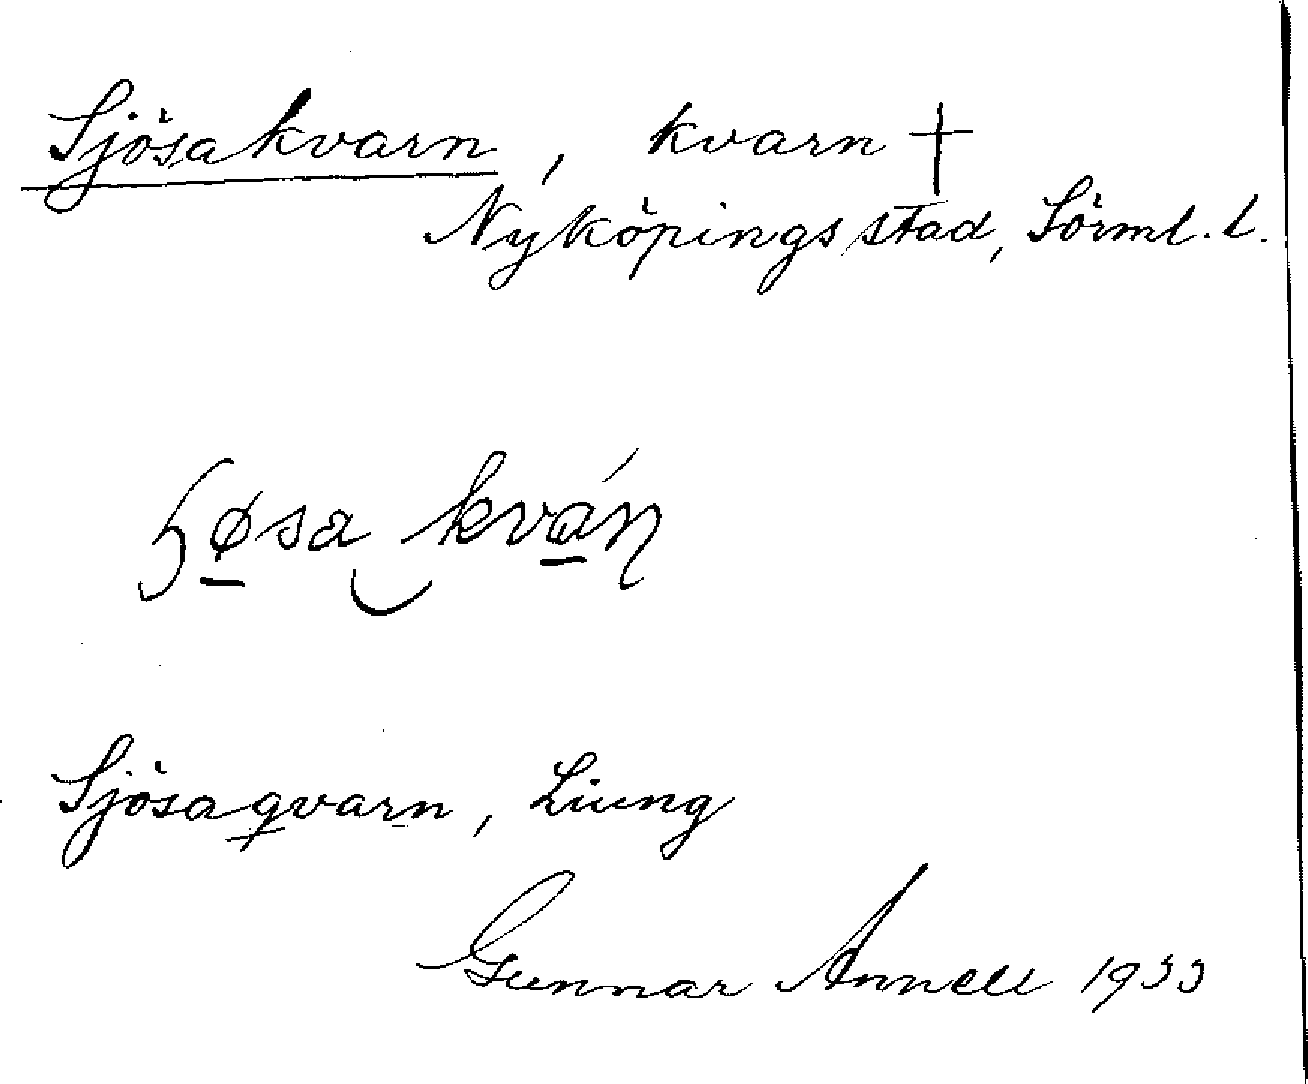 Sjösakvarn, kvarn †
Nyköpings stad, Sörml. l.
ɧøsa‿kván
Sjösaqvarn, Liung
Gunnar Annell 1933